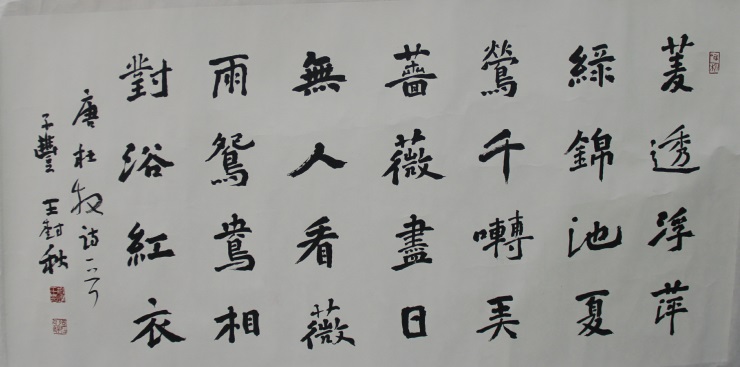 菱透浮萍
綠錦池夏
鶯千囀弄
薔薇盡日
無人看薇
雨鴛鴦相
對浴紅衣
唐杜牧诗一首
王樹秋